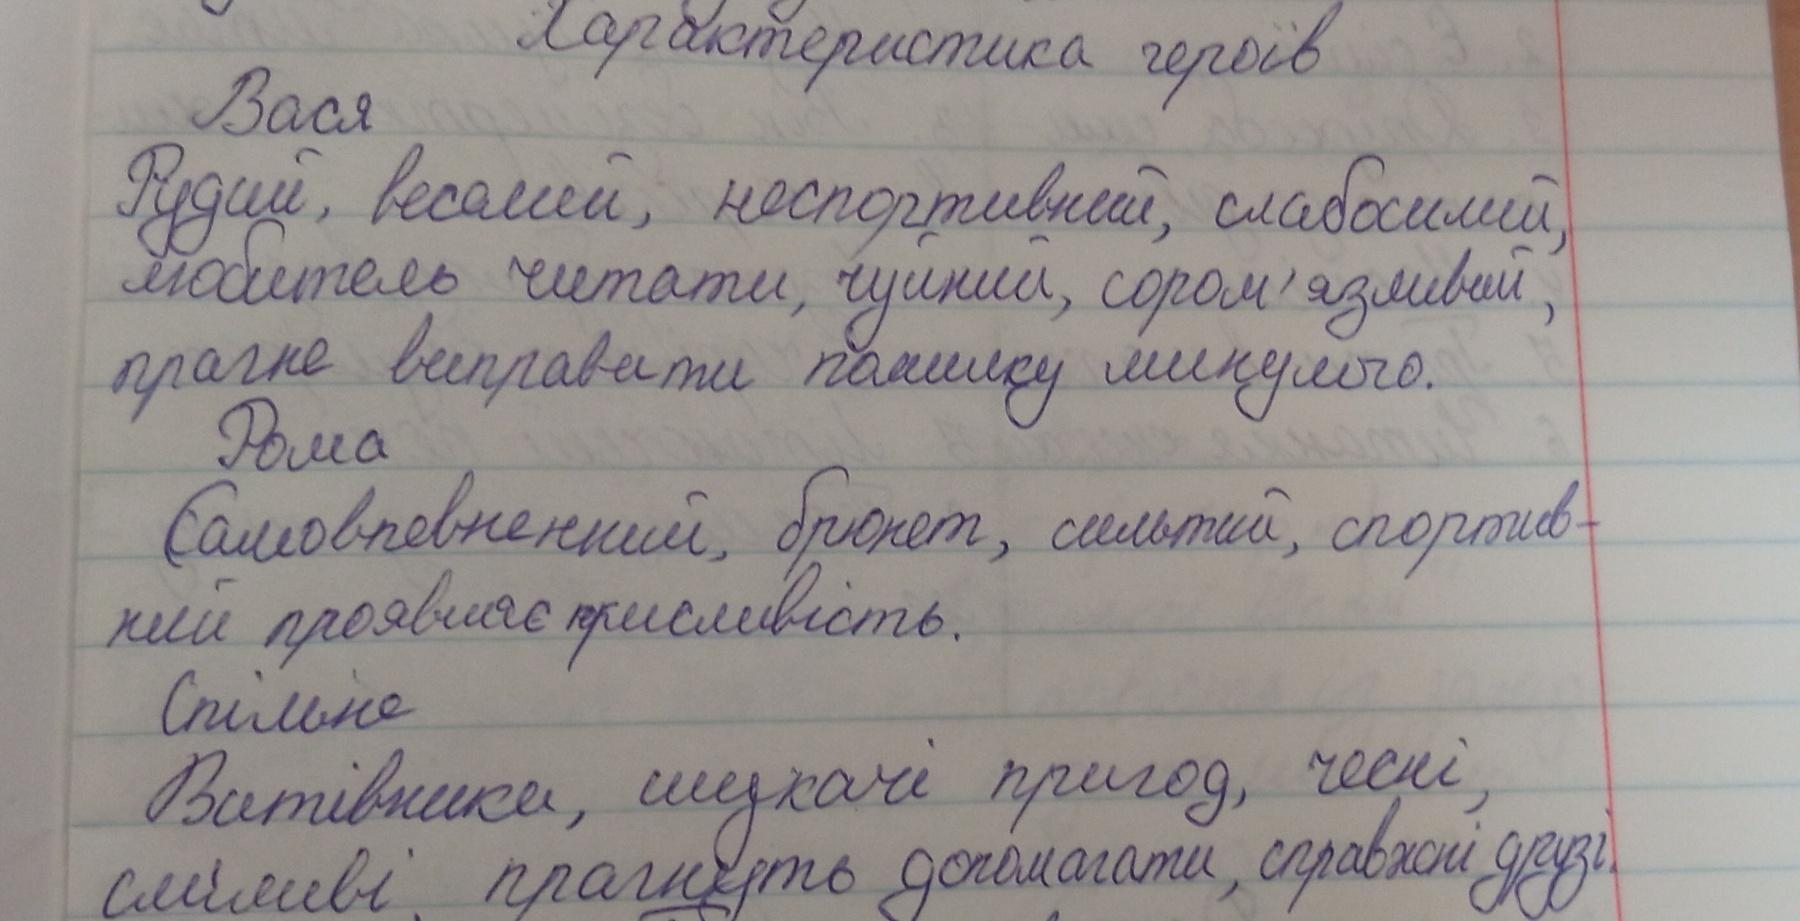 Характеристика героїв
Вася
Рудий, веселий, неспортивний, слабосилий,
любитель читати, чуйний, сором'язливий,
прагне виправити помилку минулого.
Рома
Самовпевненний, брюнет, сильний, спортив-
ний проявляє кмсливість.
Спільне
Витівники, шукачі пригод, чесні,
сміливі, прагнуть допомагати, справжні друзі.